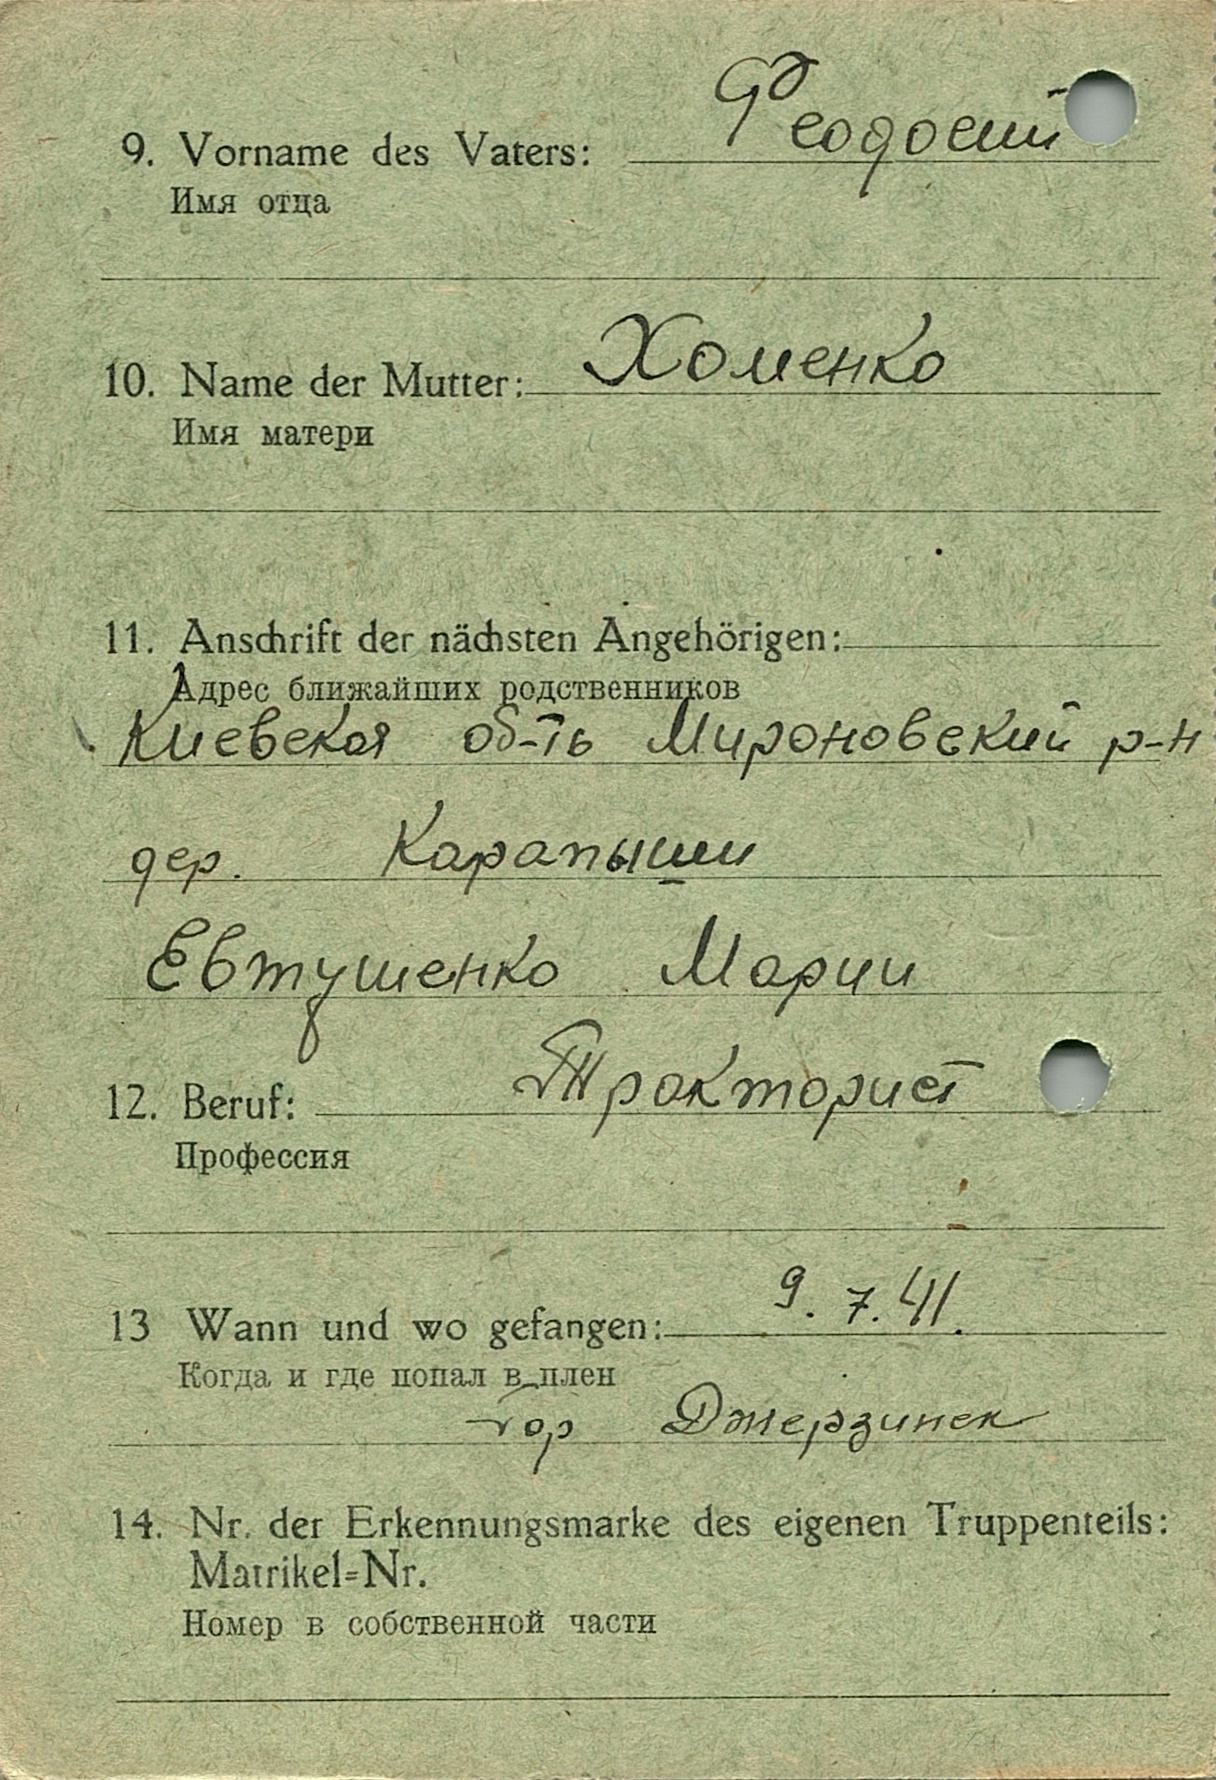 9. Vorname des Vaters: Феодосий
Имя отца
10. Name der Mutter: Хоменко
Имя матери
11. Anschrift der nächsten Angehörigen:
Адрес ближайших родственников
Киевская об-ть Мироновский р-н
дер. Карапыши
Евтушенко Марии
12. Beruf: Тракторист
Профессия
13 Wann und wo gefangen: 9. 7. 41.
Когда и где попал в плен
гор Джерзинск
14. Nr. der Erkennungsmarke des eigenen Truppenteils:
Matrikel=Nr.
Номер в собственной части